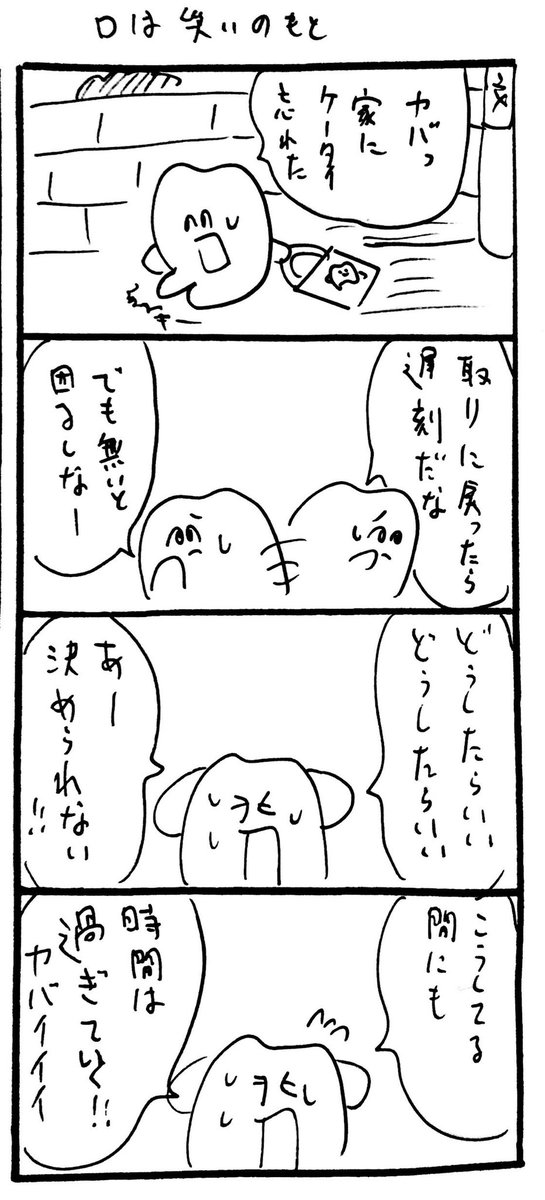 口は笑いのもと
カバっ
家に
ケータイ
忘れた
取りに戻ったら
遅刻だな
でも無いと
困るしなー
どうしたらいい
どうしたらいい
あー
決められない
!!
こうしてる
間にも
時間は
過ぎていく!!
カバイイイイ